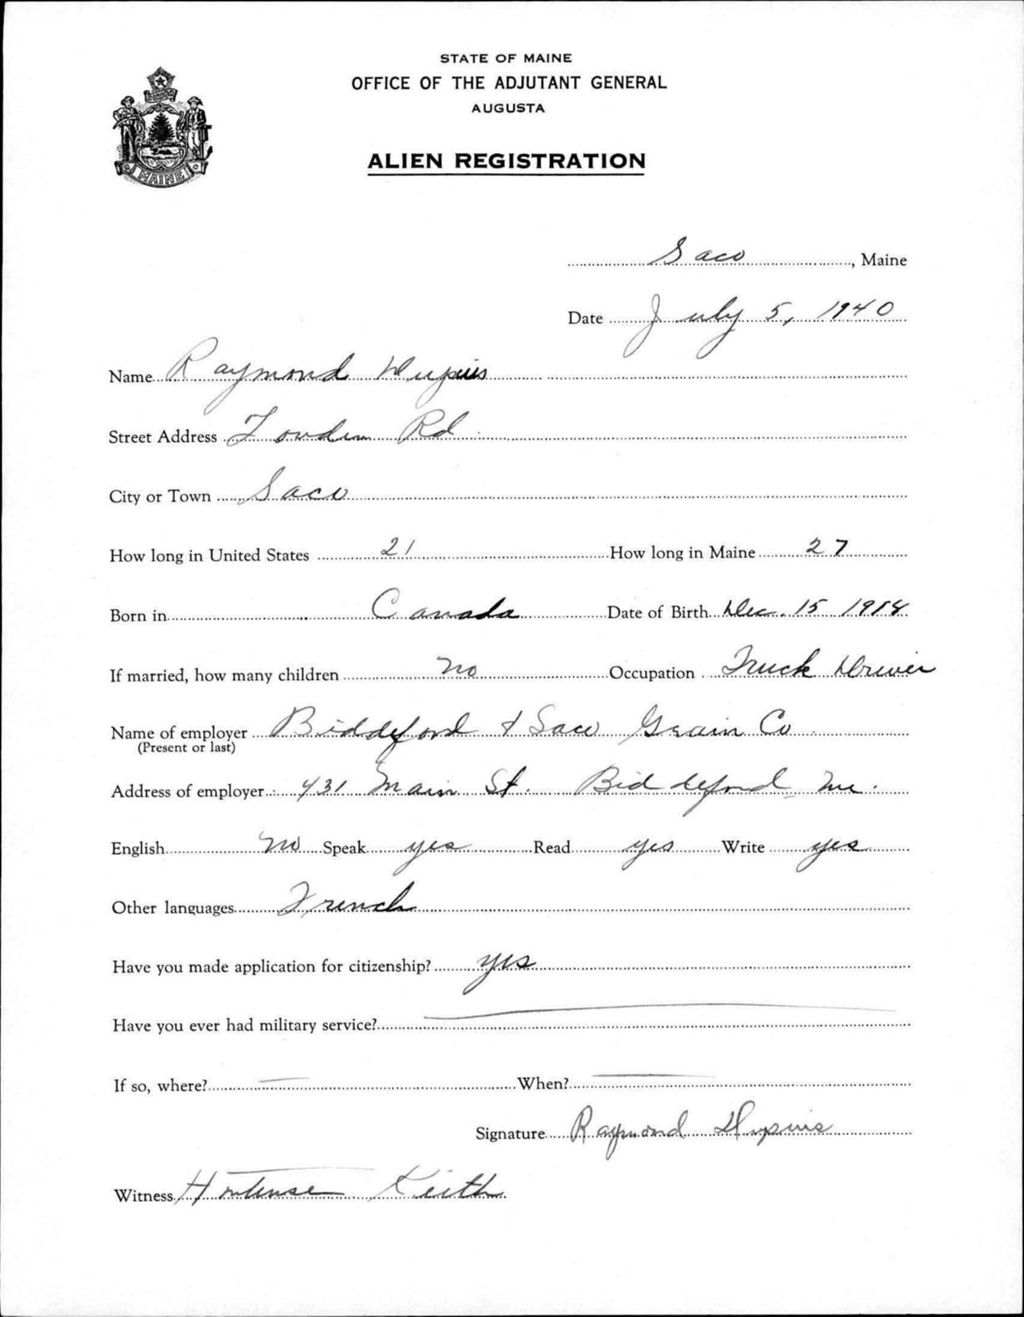 STATE OF MAINE
OFFICE OF THE ADJUTANT GENERAL
AUGUSTA
MAINE
ALIEN REGISTRATION
Saco, Maine
Date July 5, 1940
Name Raymond Dupuis
Street Address Rd
City or Town Saco
How long in United States 21 How long in Maine 27
Born in Canada Date of Birth Dec. 15 1918
If married, how many children no Occupation Truck Driver
Name of employer Biddeford & Saco Grain Co
(Present or last)
Address of employer 431 Main St. Biddeford Me.
English no Speak yes Read yes Write yes
Other languages French
Have you made application for citizenship? yes
Have you ever had military service? —
If so, where? — When? —
Signature Raymond Dupuis
Witness Hortense Keith